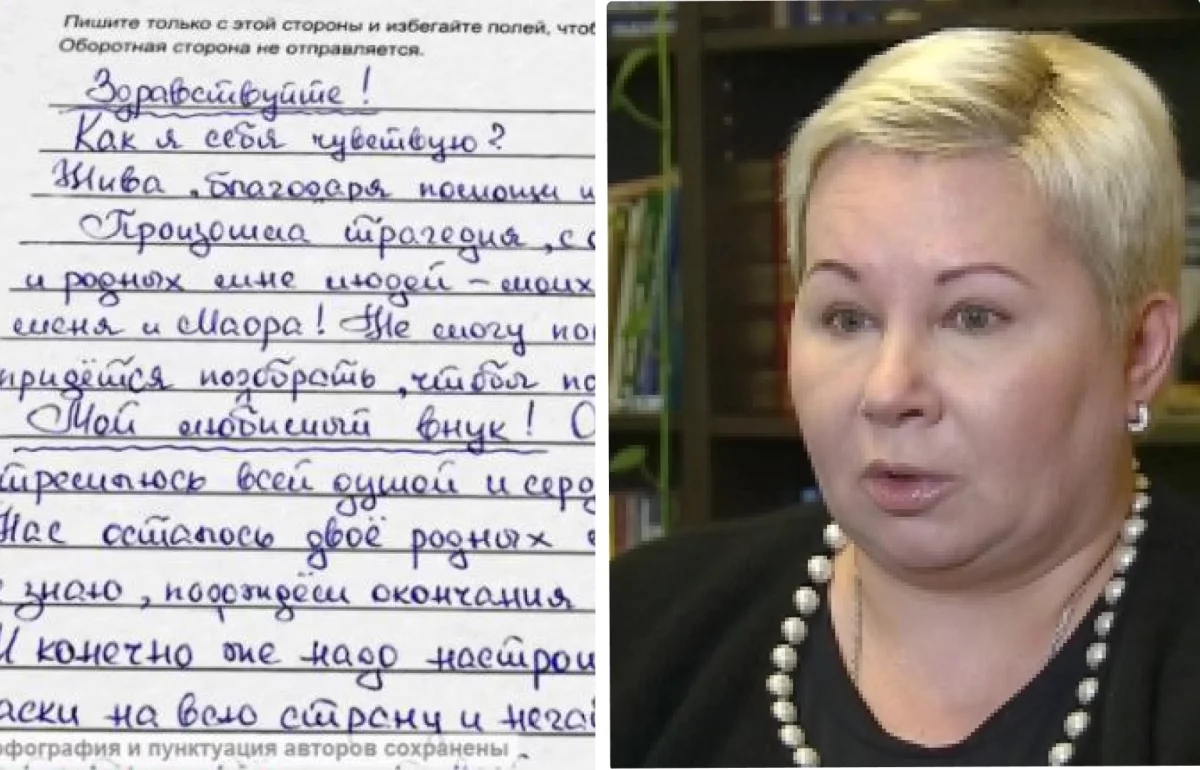 Пишите только с этой стороны и избегайте полей, чтоб
Оборотная сторона не отправляется.
Здравствуйте!
Как я себя чувствую?
Жива, благодаря помощи и
Произошла трагедия, с
и родных мне людей – моих
меня и Маора! Не могу по
придётся позобрать, чтобы по
Мой любимый внук! О
стремлюсь всей душой и серд
Нас осталось двоё родных
знаю, подождём окончания
И конечно же надо настрои
аски на всю страну и нега
орфография и пунктуация авторов сохранены